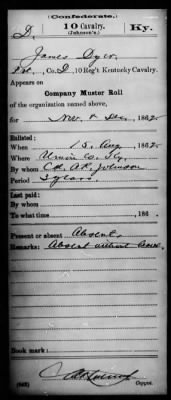 (Confederate.)
D. 10 Cavalry. Ky.
(Johnson's.)
James Dyer
Pvt., Co. D, 10 Reg't Kentucky Cavalry.
Appears on
Company Muster Roll
of the organization named above,
for Nov. & Dec, 1862.
Enlisted:
When 15 Aug 1862.
Where Union Co. Ky.
By whom Col. A.R. Johnson
Period 3 years
Last paid:
By whom
To what time , 186 .
Present or absent Absent
Remarks: Absent without leave.
Book mark:
(642) Copyist.